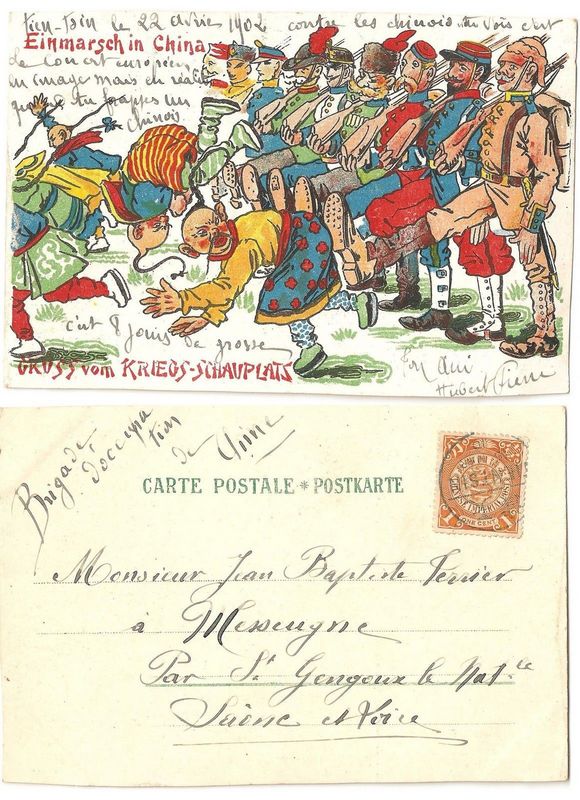 tien-tsin le 22 avril 1902 contre les chinois. tu vois c'est
Einmarsch in China
le concert européen
en image mais en réalité
que si tu frappes un
chinois
c'est 8 jours de grosse
Ton ami
Hubert Pierre
GRUSS vom KRIEGS-SCHAUPLATS
Brigade
d'occupa
tion
de Chine
CARTE POSTALE * POSTKARTE
1 ONE CENT 1
Monsieur Jean Baptiste Terrier
à Messeugne
Par St Gengoux le Nat^le
Saône et Loire